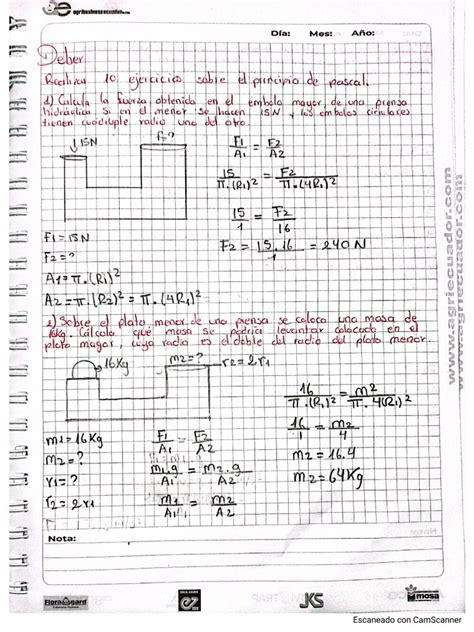 agriecuador.com
Día: Mes: Año:
Deber
Realizar 10 ejercicios sobre el principio de pascal.
1) Calcula la fuerza obtenida en el embolo mayor de una prensa
hidráulica si en el menor se hacen 15N y los embolos circulares
tienen cuadruple radio uno del otro.
↓15N F=?
F1/A1 = F2/A2
15/π.(R1)² = F2/π.(4R1)²
15/1 = F2/16
F1=15N
F2 = 15.16/1 = 240N
F2=?
A1=π.(R1)²
A2=π.(R2)²=π.(4R1)²
2) Sobre el plato menor de una prensa se coloca una masa de
16kg. Calcula que masa se podría levantar colocado en el
plato mayor, cuyo radio es el doble del radio del plato menor.
16Kg m2=? r2=2r1
m1=16Kg
m2=?
r1=?
r2=2r1
F1/A1 = F2/A2
m1.g/A1 = m2.g/A2
m1/A1 = m2/A2
16/π.(R1)² = m2/π.4(R1)²
16/1 = m2/4
m2=16.4
m2=64Kg
www.agriecuador.com
www.agriecuador.com
Nota:
Floragard ez JKS mosa
Escaneado con CamScanner